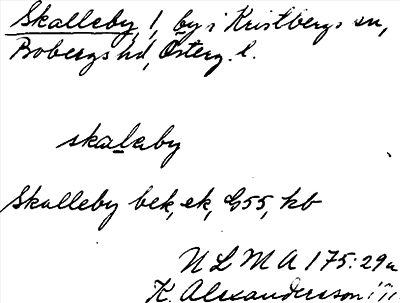 Skalleby, 1, by i Kristbergs sn,
Bobergs hd, Österg. l.
skalaby
Skalleby bek, ek, G55, kb
N L M A 175:29a
K. Alexandersson